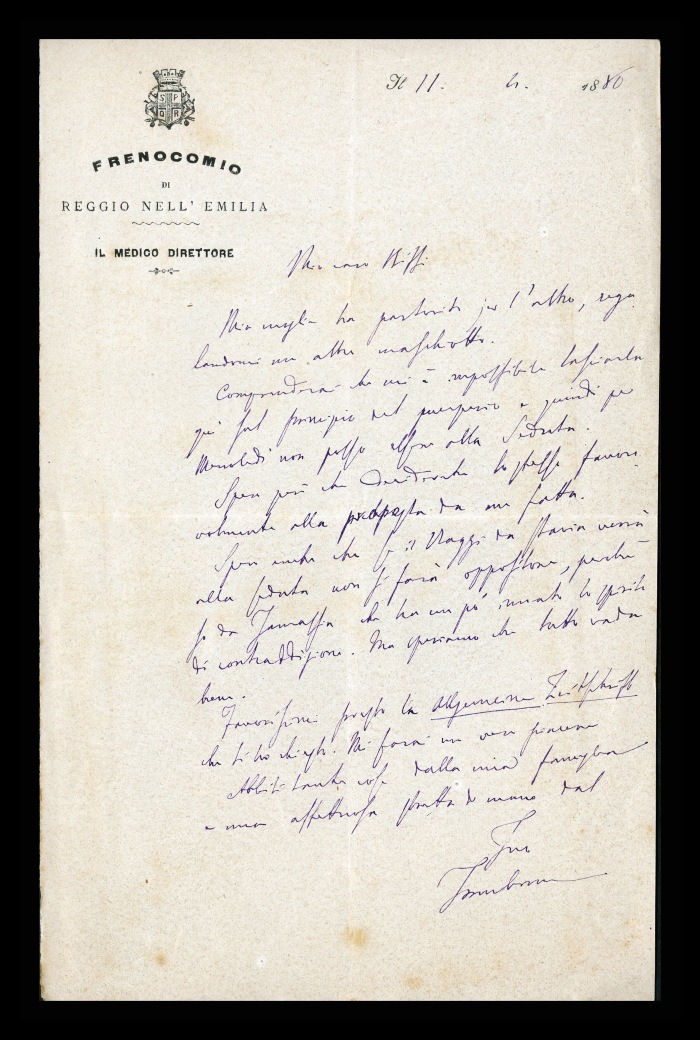 S P
Q R
FRENOCOMIO
DI
REGGIO NELL' EMILIA
IL MEDICO DIRETTORE
Il 11. 4. 1880
Mio caro Biffi
Mia moglie ha partorito jer l'altro, rega
landomi un altro maschiotto.
Comprenderai che mi è impossibile lasciarla
qui sul principio del puerperio e quindi per
Mercoledì non posso essere alla Seduta.
Spero però che deciderete lo stesso favore
volmente alla proposta da me fatta.
Spero anche che se il Viaggi da Pavia verrà
alla seduta non si farà oppositore, perchè
so da Tamassia che ha un po' innato lo spirito
di contraddizione. Ma speriamo che tutto vada
bene.
Favoriscimi presto la Allgemeine Zeitschrift
che ti ho chiesto. Mi farai un vero piacere
Abbiti tante cose dalla mia famiglia
e una affettuosa stretta di mano dal
Tuo
Tamburini